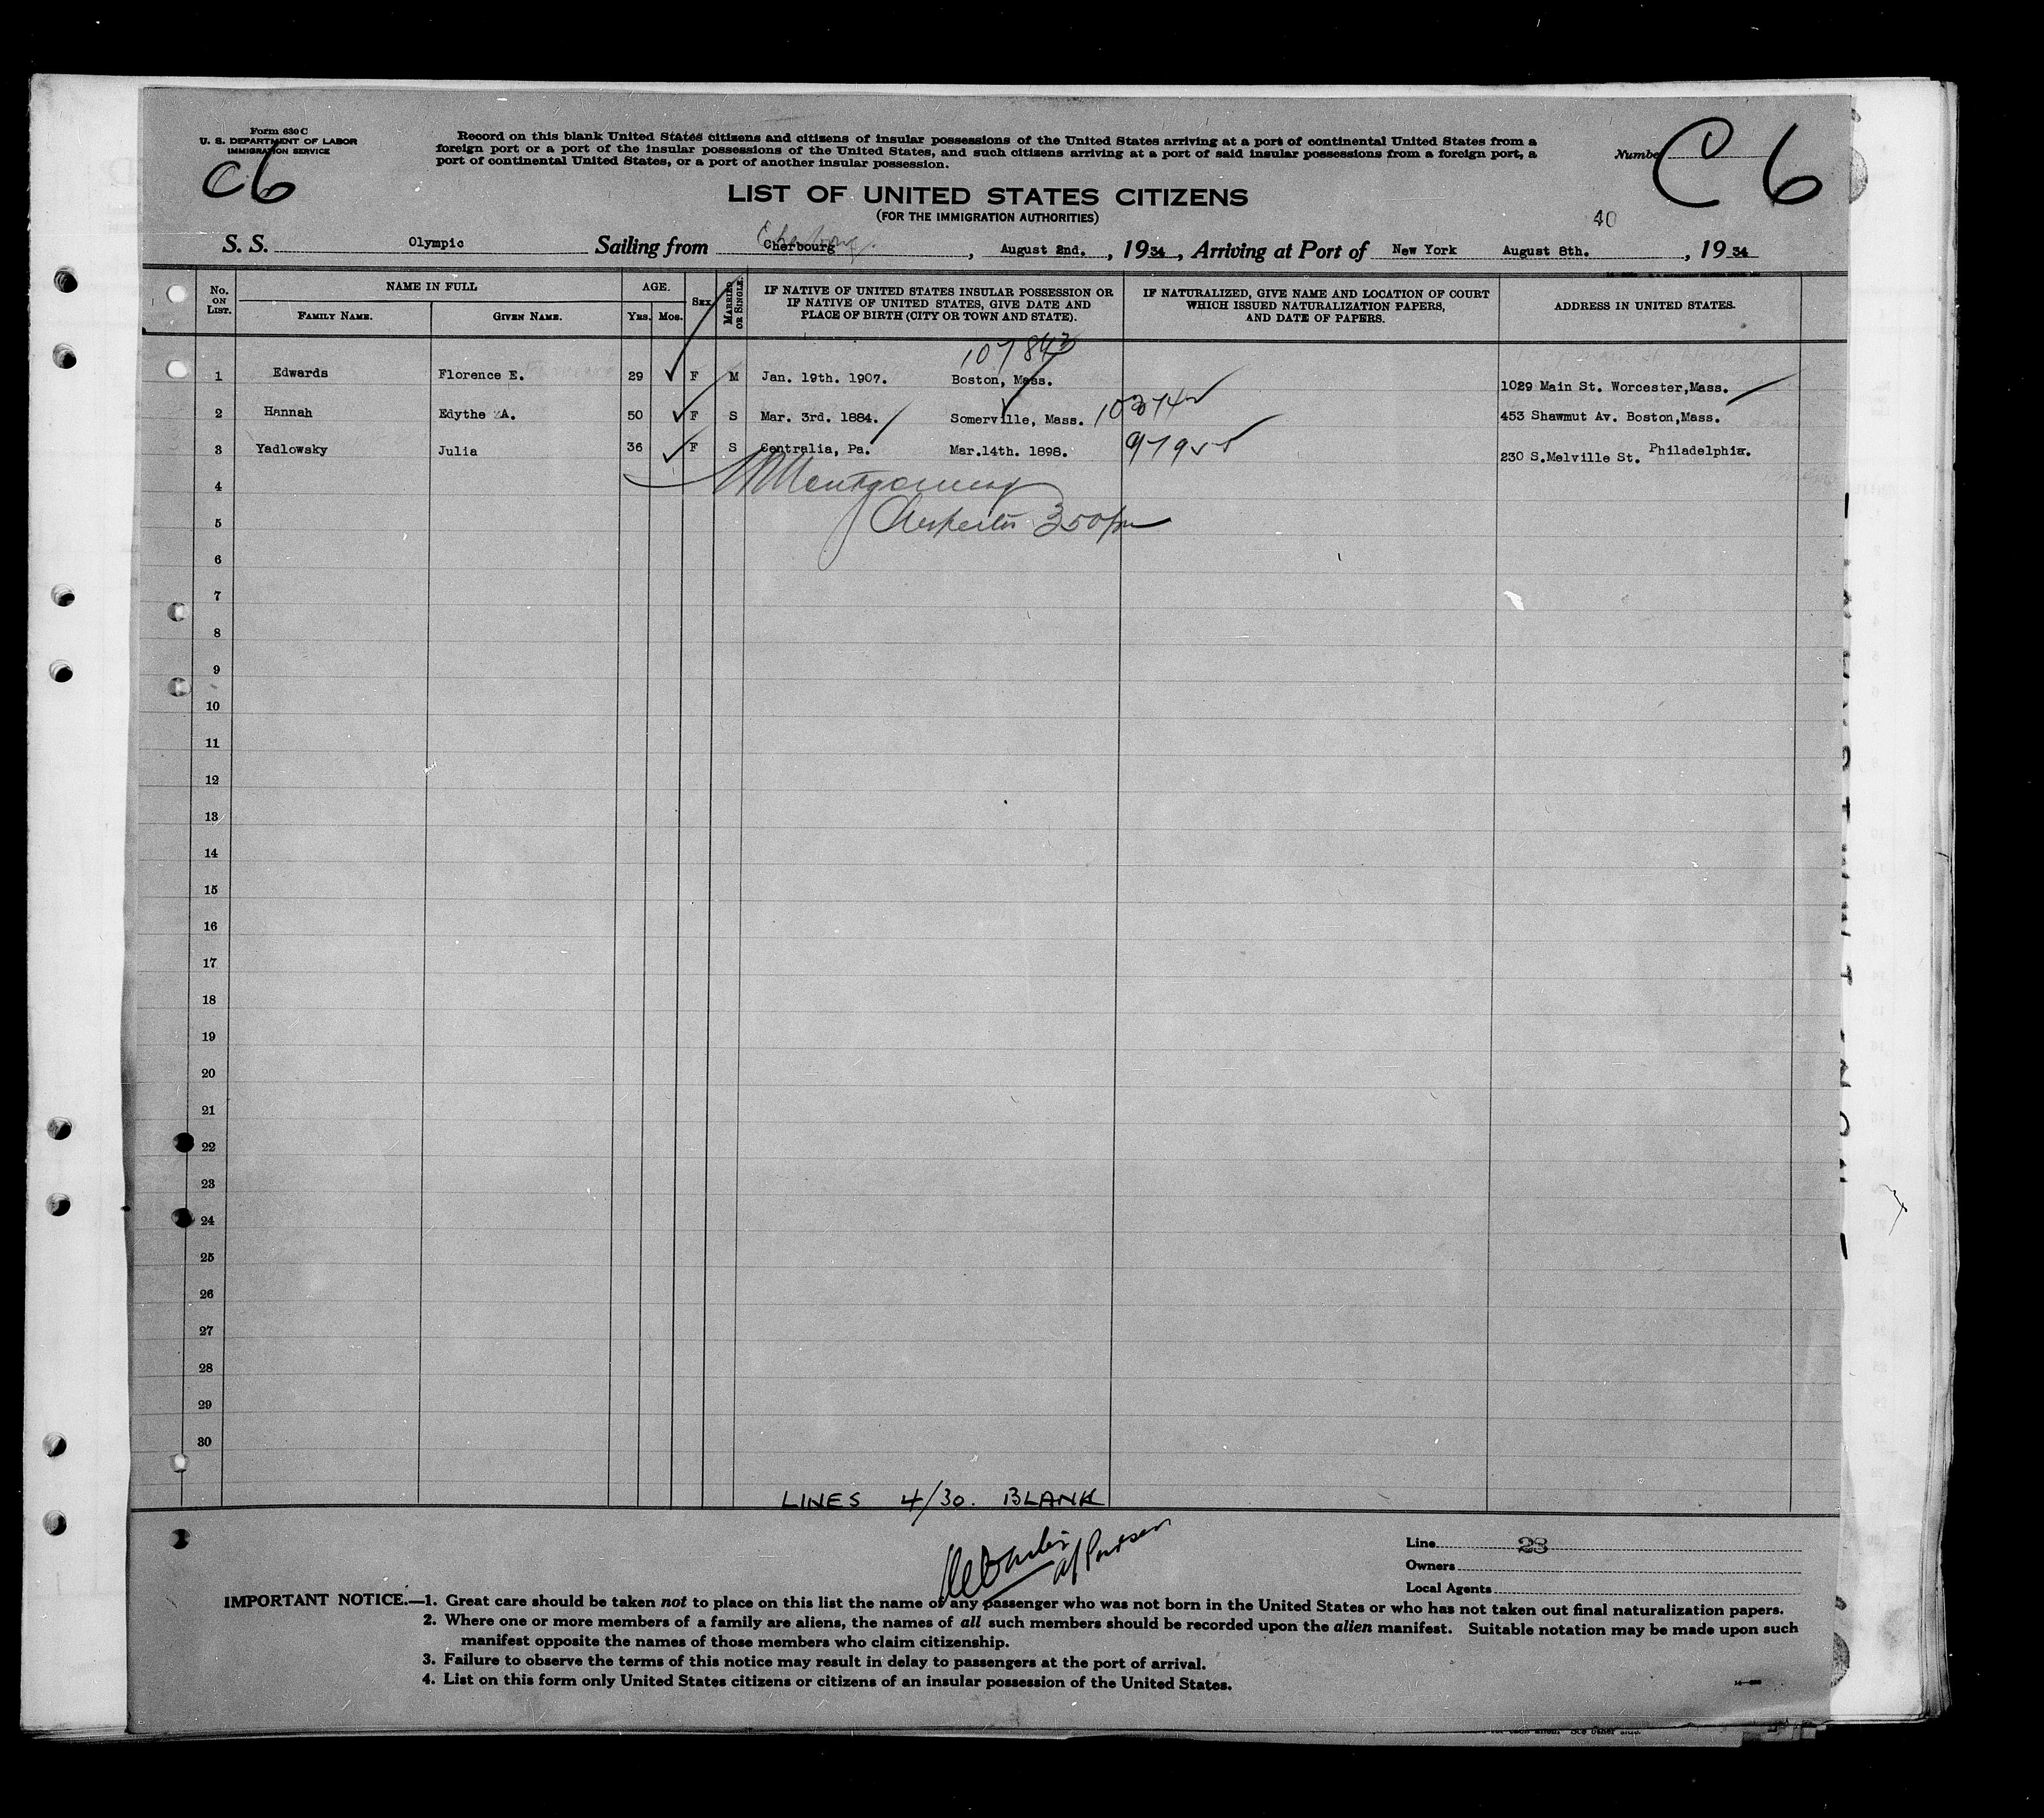 Form 630 C
U. S. DEPARTMENT OF LABOR
IMMIGRATION SERVICE
C6
Record on this blank United States citizens and citizens of insular possessions of the United States arriving at a port of continental United States from a
foreign port or a port of the insular possessions of the United States, and such citizens arriving at a port of said insular possessions from a foreign port, a
port of continental United States, or a port of another insular possession.
Number C 6
LIST OF UNITED STATES CITIZENS
(FOR THE IMMIGRATION AUTHORITIES)
40
Cherbourg
S. S. Olympic Sailing from Cherbourg, August 2nd., 1934, Arriving at Port of New York August 8th., 1934
No. ON LIST. NAME IN FULL AGE. SEX MARRIED OR SINGLE. IF NATIVE OF UNITED STATES INSULAR POSSESSION OR IF NATIVE OF UNITED STATES, GIVE DATE AND PLACE OF BIRTH (CITY OR TOWN AND STATE). IF NATURALIZED, GIVE NAME AND LOCATION OF COURT WHICH ISSUED NATURALIZATION PAPERS, AND DATE OF PAPERS. ADDRESS IN UNITED STATES.
FAMILY NAME. GIVEN NAME. YRS. MOS.
107843
1 Edwards Florence E. 29 F M Jan. 19th. 1907. Boston, Mass. 1029 Main St. Worcester,Mass.
2 Hannah Edythe A. 50 F S Mar. 3rd. 1884. Somerville, Mass. 453 Shawmut Av. Boston,Mass.
3 Yadlowsky Julia 36 F S Centralia, Pa. Mar.14th. 1898. 230 S.Melville St. Philadelphia.
4 Montgomery
5 350 pm
6
7
8
9
10
11
12
13
14
15
16
17
18
19
20
21
22
23
24
25
26
27
28
29
30
LINES 4/30. BLANK
Line 23
Owners
Local Agents
IMPORTANT NOTICE.—1. Great care should be taken not to place on this list the name of any passenger who was not born in the United States or who has not taken out final naturalization papers.
2. Where one or more members of a family are aliens, the names of all such members should be recorded upon the alien manifest. Suitable notation may be made upon such
manifest opposite the names of those members who claim citizenship.
3. Failure to observe the terms of this notice may result in delay to passengers at the port of arrival.
4. List on this form only United States citizens or citizens of an insular possession of the United States.